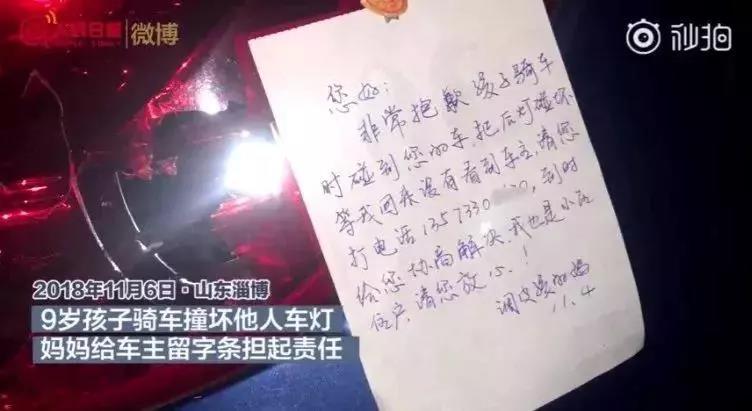 微博
秒拍
您好:
非常抱歉孩子骑车
时碰到您的车,把后灯碰坏
等我回来没有看到车主,请您
打电话1357330 0,到时
给您协商解决,我也是小区
住户,请您放心!
调皮孩的妈
11.4
2018年11月6日·山东淄博
9岁孩子骑车撞坏他人车灯
妈妈给车主留字条担起责任